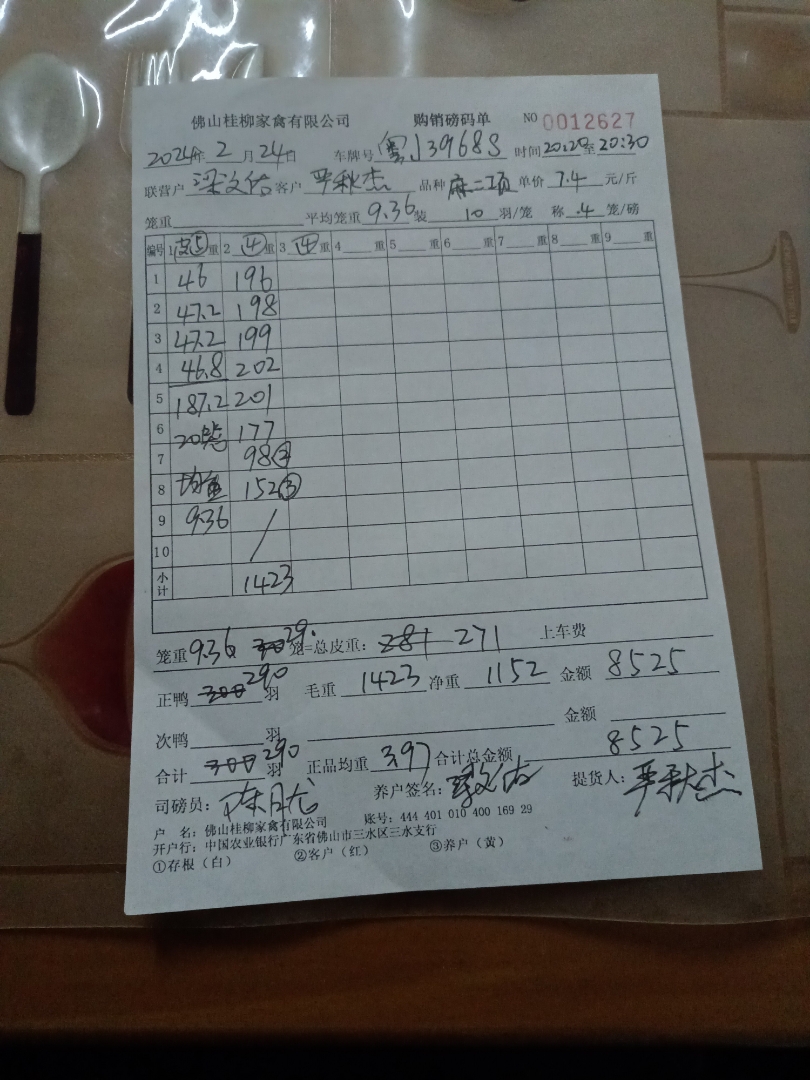 佛山桂柳家禽有限公司 购销磅码单 NO 0012627
2024年 2 月 24日 车牌号 粤J39688 时间 20:20至20:30
联营户 客户 严秋杰 品种 麻二项 单价 7.4 元/斤
笼重 平均笼重 9.36 装 10 羽/笼 称 .4 笼/磅
编号 1 皮⑤ 重 2 ④ 重 3 ④ 重 4 重 5 重 6 重 7 重 8 重 9 重
1 46 196
2 47.2 198
3 47.2 199
4 46.8 202
5 187.2 201
6 20笼 177
7 98②
8 均重 152③
9 9.36 /
10
小计 1423
笼重 9.36 x 29. 笼=总皮重: 281 271 上车费
正鸭 300 290 羽 毛重 1423 净重 1152 金额 8525
次鸭 羽 金额
合计 300 290 羽 正品均重 3.97 合计总金额 8525
司磅员: 养户签名: 提货人: 严秋杰
户 名: 佛山桂柳家禽有限公司 账号: 444 401 010 400 169 29
开户行: 中国农业银行广东省佛山市三水区三水支行
①存根(白) ②客户(红) ③养户(黄)